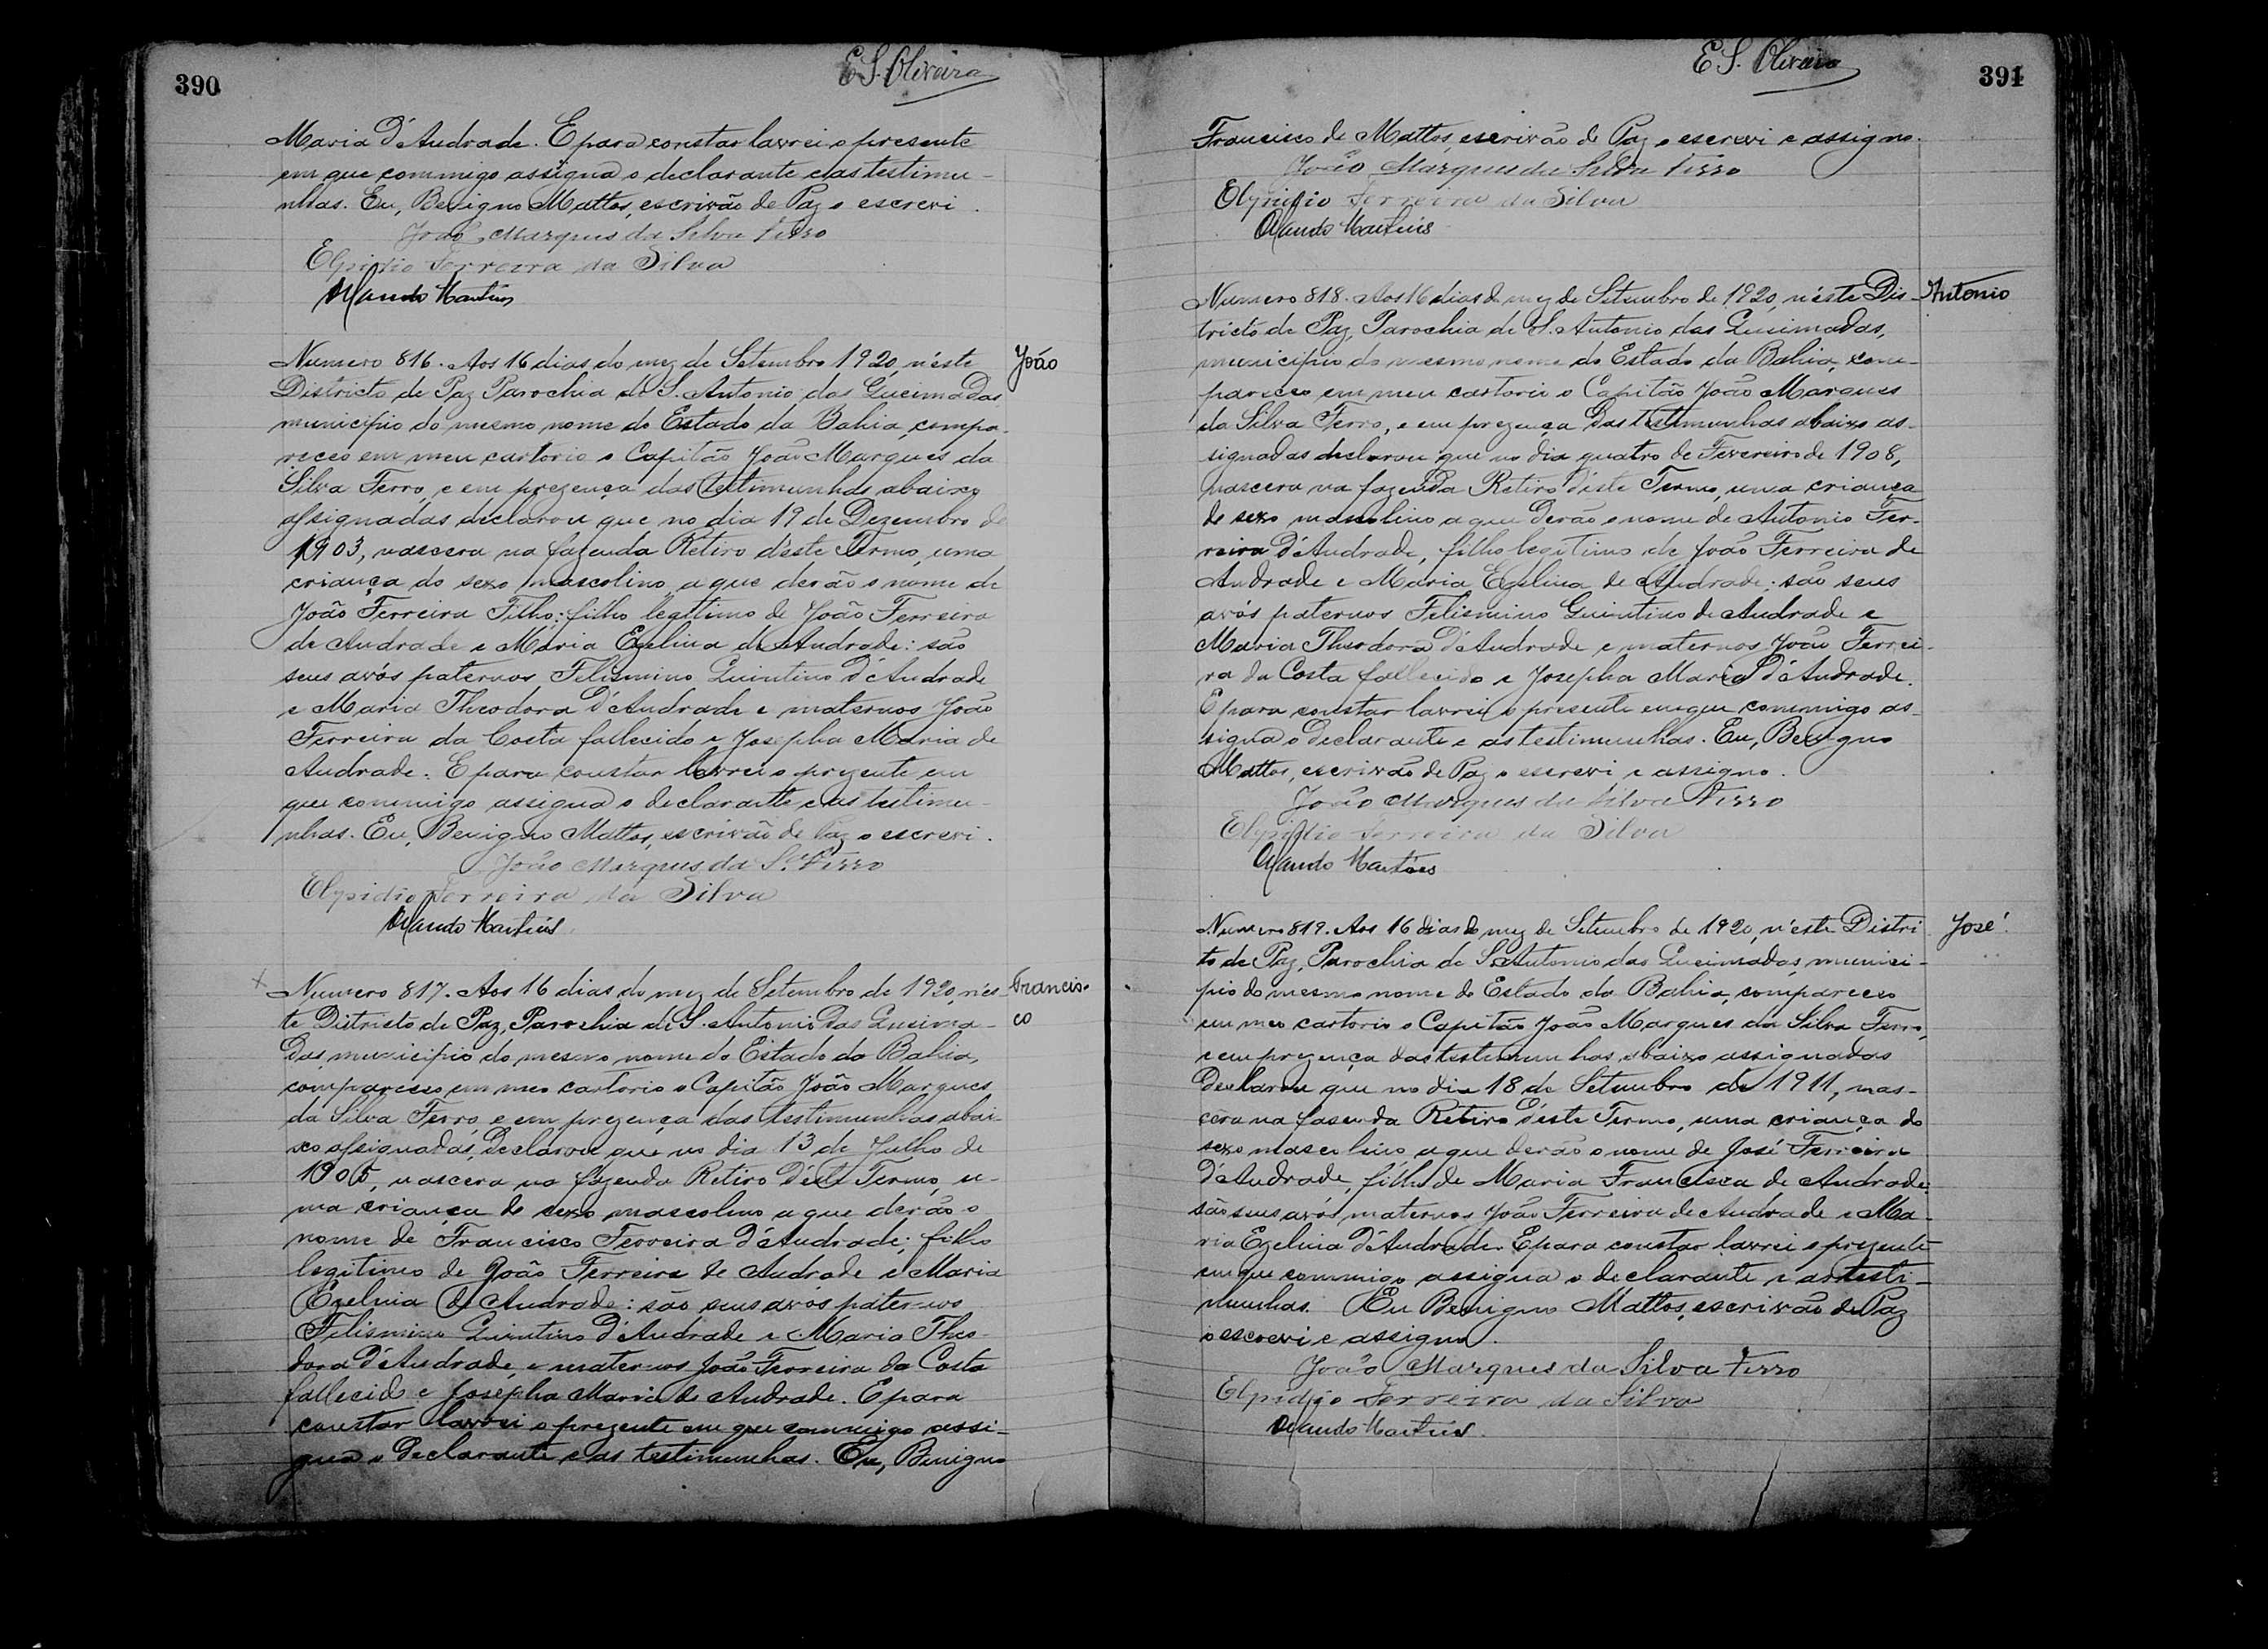 390
E S. Oliveira
Maria d'Andrade. E para constar lavrei o presente
em que commigo assigna o declarante e as testimu-
nhas. Eu, Benigno Mattos, escrivão de Paz o escrevi.
João Marques da Silva Ferro
Elpidio Ferreira da Silva
Martins
João
Numero 816. Aos 16 dias do mez de Setembro 1920, n'éste
Districto de Paz Parochia de S. Antonio das Queimadas
municipio do mesmo nome do Estado da Bahia, compa-
receo em meu cartorio o Capitão João Marques da
Silva Ferro, e em prezença das testimunhas abaixo
assignadas declarou que no dia 19 de Dezembro de
1903, nascera na fazenda Retiro d'éste Termo, uma
criança do sexo masculino a que derão o nome de
João Ferreira Filho: filho legitimo de João Ferreira
de Andrade e Maria Ezelina de Andrade: são
seus avós paternos Felismino Quintino d'Andrade
e Maria Theodora d'Andrade e maternos João
Ferreira da Costa fallecido e Josepha Maria de
Andrade. E para constar lavrei o prezente em
que commigo assigna o declarante e as testimu-
nhas. Eu, Benigno Mattos, escrivão de Paz o escrevi.
João Marques da Sª Ferro
Elpidio Ferreira da Silva
Martins
Francis-
co
Numero 817. Aos 16 dias do mez de Setembro de 1920, n'es-
te Districto de Paz, Parochia de S. Antonio das Queima-
das, municipio do mesmo nome do Estado da Bahia,
compareceo em meo cartorio o Capitão João Marques
da Silva Ferro, e em prezença das testimunhas abai-
xo assignadas, declarou que no dia 13 de Julho de
1905, nascera na fazenda Retiro d'éste Termo, u-
ma criança do sexo masculino a que derão o
nome de Francisco Ferreira d'Andrade; filho
legitimo de João Ferreira de Andrade e Maria
Ezelina de Andrade: são seus avós paternos
Felismino Quintino d'Andrade e Maria Theo-
dora d'Andrade, e maternos João Ferreira da Costa
fallecido e Josepha Maria de Andrade. E para
constar lavrei o prezente em que commigo assi-
gna o declarante e as testimunhas. Eu, Benigno
391
E S. Oliveira
Francisco de Mattos, escrivão de Paz o escrevi e assigno.
João Marques da Silva Ferro
Elpidio Ferreira da Silva
Martins
Antonio
Numero 818. Aos 16 dias do mez de Setembro de 1920, n'éste Dis-
tricto de Paz, Parochia de S. Antonio das Queimadas,
municipio do mesmo nome do Estado da Bahia, com-
pareceo em meu cartorio o Capitão João Marques
da Silva Ferro, e em prezença das testimunhas abaixo as-
signadas declarou que no dia quatro de Fevereiro de 1908,
nascera na fazenda Retiro d'éste Termo, uma criança
do sexo masculino a que derão o nome de Antonio Fer-
reira d'Andrade, filho legitimo de João Ferreira de
Andrade e Maria Ezelina de Andrade: são seus
avós paternos Felismino Quintino de Andrade e
Maria Theodora d'Andrade e maternos João Ferrei-
ra da Costa fallecido e Josepha Maria d'Andrade.
E para constar lavrei o presente em que commigo as-
signa o declarante e as testimunhas. Eu, Benigno
Mattos, escrivão de Paz o escrevi e assigno.
João Marques da Silva Ferro
Elpidio Ferreira da Silva
Martins
José
Numero 819. Aos 16 dias do mez de Setembro de 1920, n'éste Distri-
to de Paz, Parochia de S. Antonio das Queimadas, munici-
pio do mesmo nome do Estado da Bahia, compareceo
em meo cartorio o Capitão João Marques da Silva Ferro,
e em prezença das testimunhas abaixo assignadas
declarou que no dia 18 de Setembro de 1911, nas-
cera na fasenda Retiro d'éste Termo, uma criança do
sexo masculino, a que derão o nome de José Ferreira
d'Andrade, filho de Maria Francisca de Andrade:
são seus avós maternos João Ferreira de Andrade e Ma-
ria Ezelina d'Andrade. E para constar lavrei o prezente
em que commigo assigna o declarante e as testi-
munhas. Eu Benigno Mattos, escrivão de Paz
o escrevi e assigno.
João Marques da Silva Ferro
Elpidio Ferreira da Silva
Martins